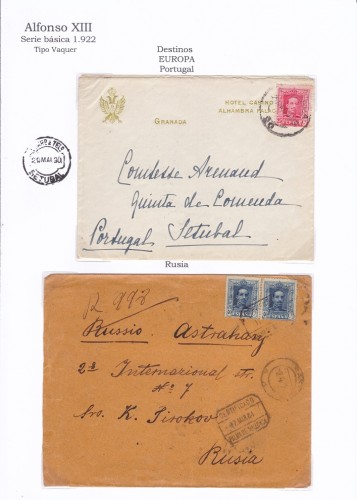 Alfonso XIII
Serie básica 1.922
Tipo Vaquer
Destinos
EUROPA
Portugal
HOTEL CASINO
ALHAMBRA PALACE
GRANADA
SETUBAL
Comtesse Armand
Quinta de Comenda
Portugal Setubal
Rusia
R 997
Russio Astrahanj
2ª Internazional str.
Nº 7
Sro. K. Pirokov
Rusia